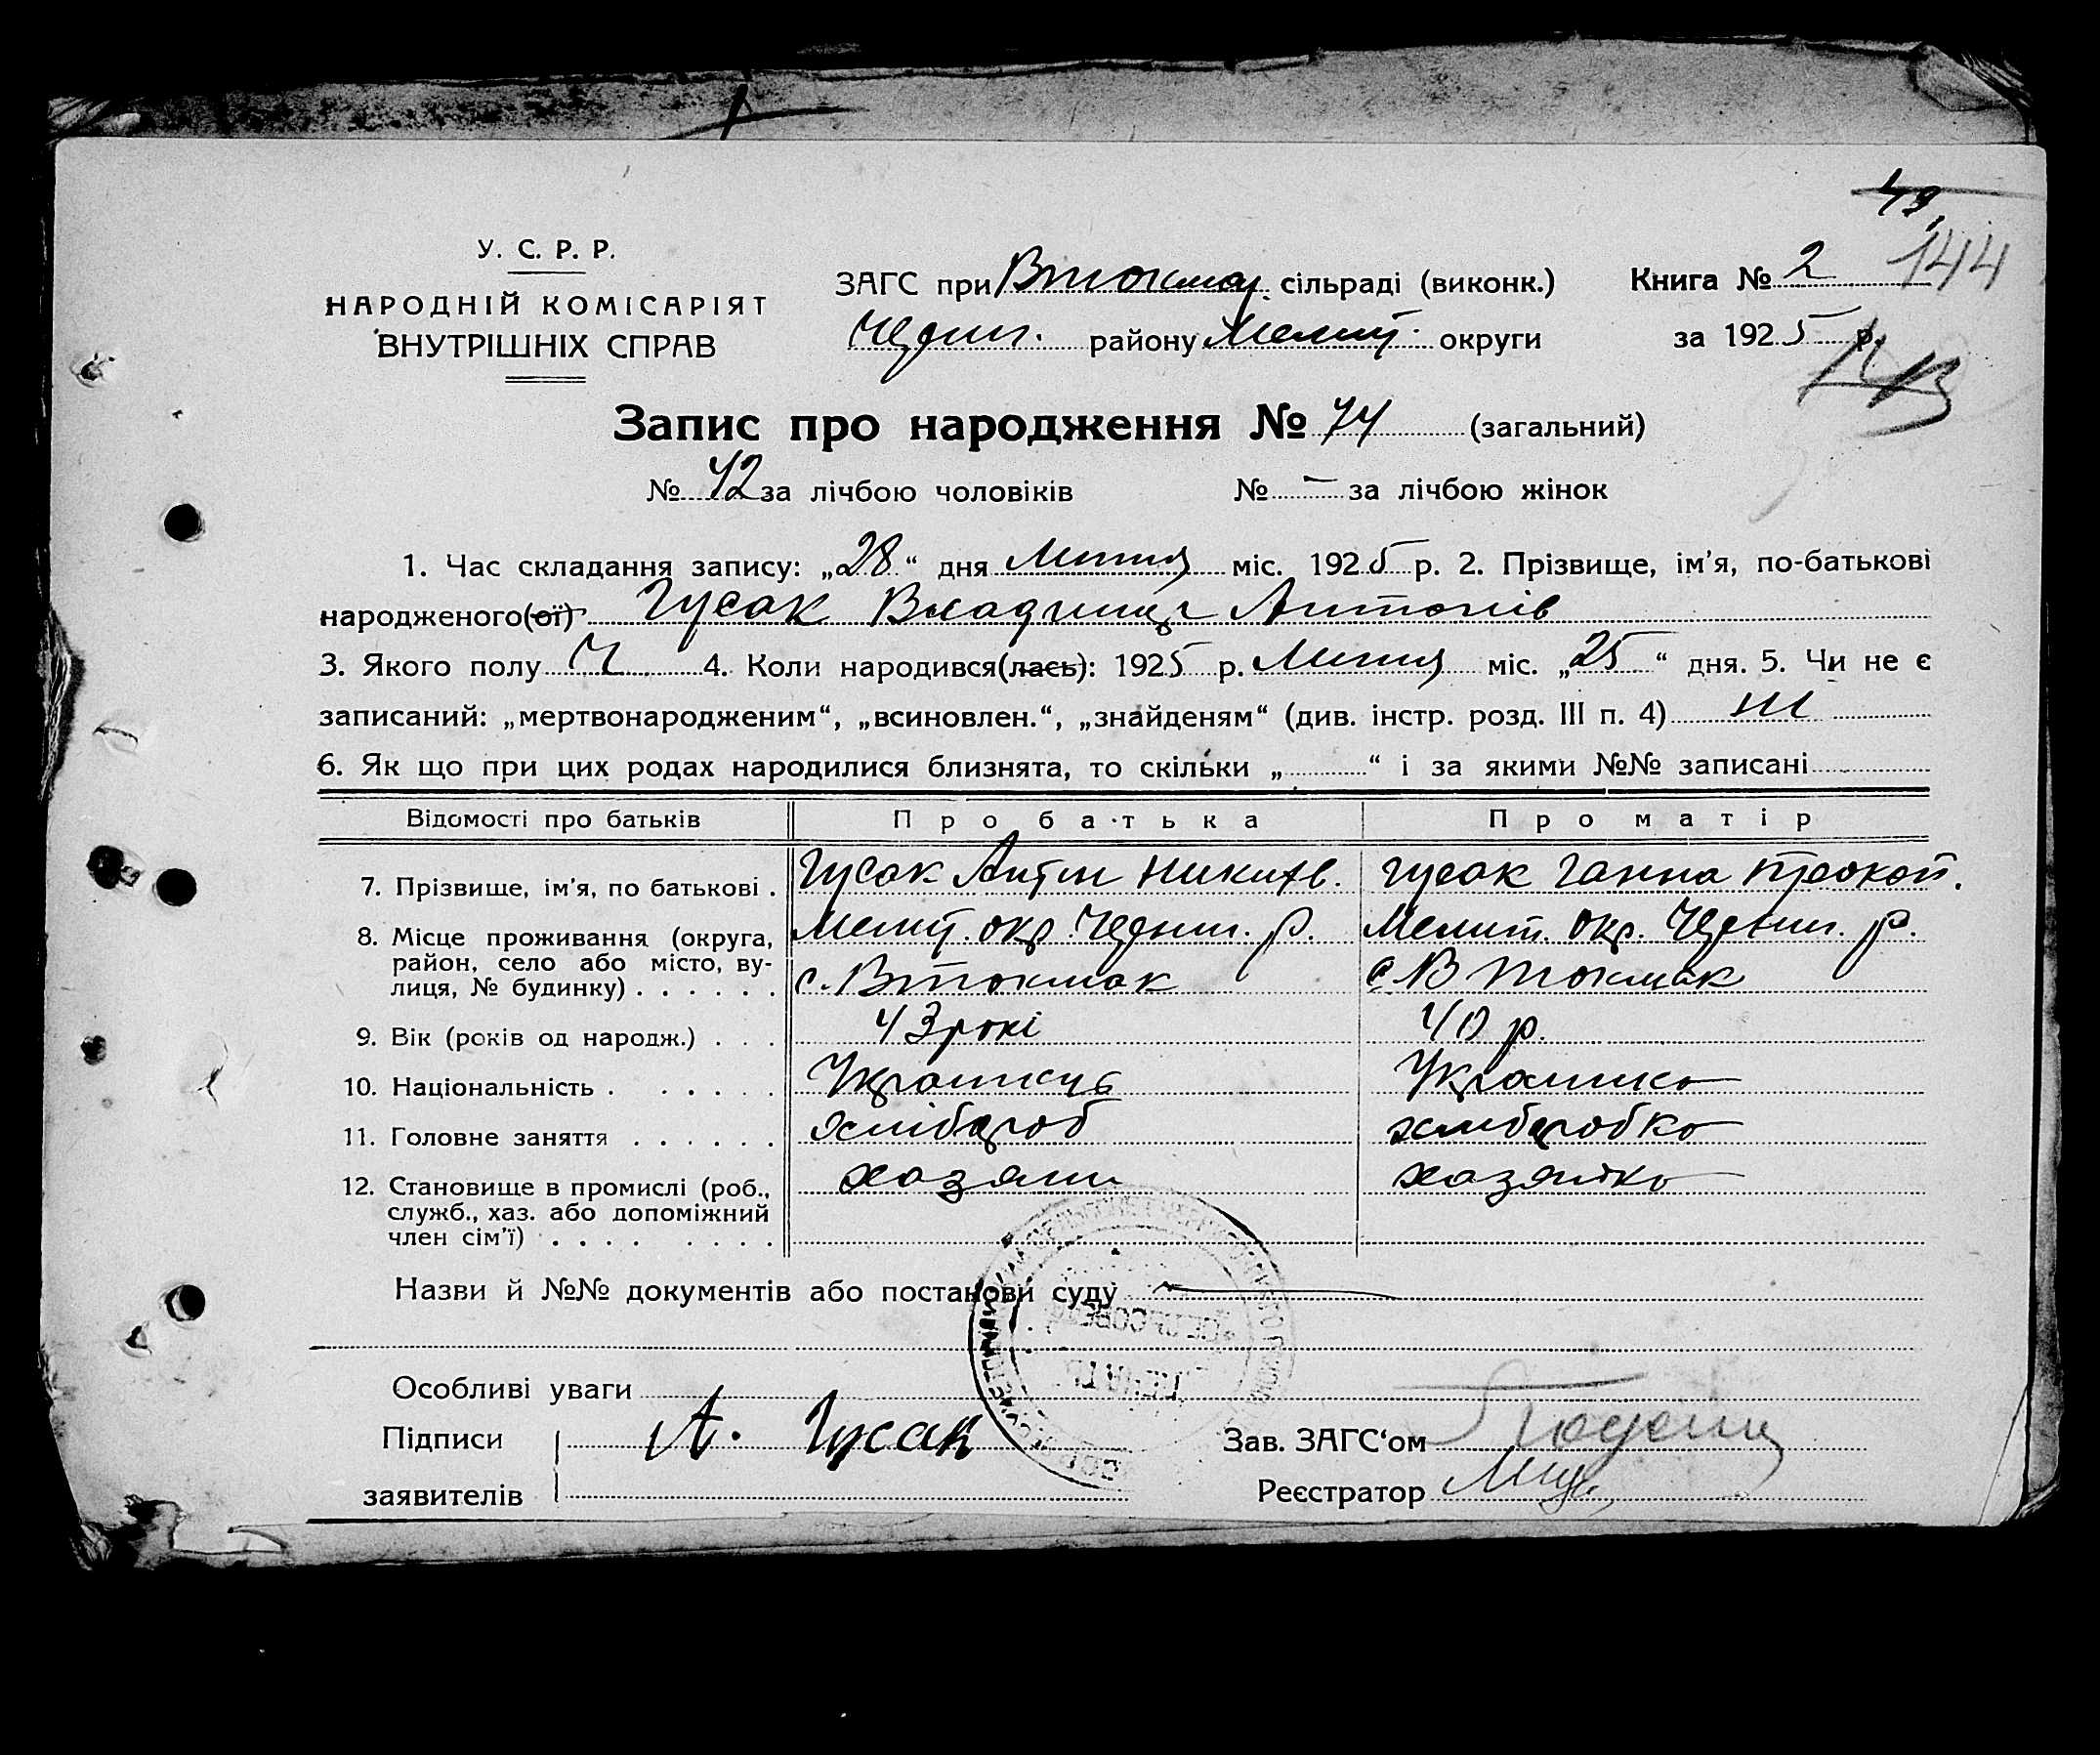 49
У. С. Р. Р.
НАРОДНІЙ КОМІСАРІЯТ
ВНУТРІШНІХ СПРАВ
ЗАГС при Втокмац. сільраді (виконк.)
Книга № 2 144
Чернин. району Мелит. округи
за 1925 р.
Запис про народження № 74 (загальний)
№ 42 за лічбою чоловіків № – за лічбою жінок
1. Час складання запису: „28“ дня Липня міс. 1925 р. 2. Прізвище, ім'я, по-батькові
народженого(ої) Гусак Владимир Антонів
3. Якого полу Ч 4. Коли народився(лась): 1925 р. Липня міс. „25“ дня. 5. Чи не є
записаний: „мертвонародженим“, „всиновлен.“, „знайденям“ (див. інстр. розд. III п. 4) ні
6. Як що при цих родах народилися близнята, то скільки „ “ і за якими №№ записані
Відомості про батьків Про батька Про матір
7. Прізвище, ім'я, по батькові . Гусак Антін Никитв. Гусак Ганна Прокоп.
8. Місце проживання (округа, Мелит. окр. Чернин. р. Мелит. Окр. Чернин. р.
район, село або місто, ву-
лиця, № будинку) . . . . . . с. Втокмак с. В Токмак
9. Вік (років од народж.) . . . 43 рокі 40 р.
10. Національність . . . . . . Українець Українка
11. Головне заняття . . . . . . хлібороб хліборобка
12. Становище в промислі (роб., хазяїн хазяйка
служб., хаз. або допоміжний
член сім'ї) . . . . . . . .
Назви й №№ документів або постанови суду
Особливі уваги
Підписи А. Гусак Зав. ЗАГС'ом
заявителів Реєстратор